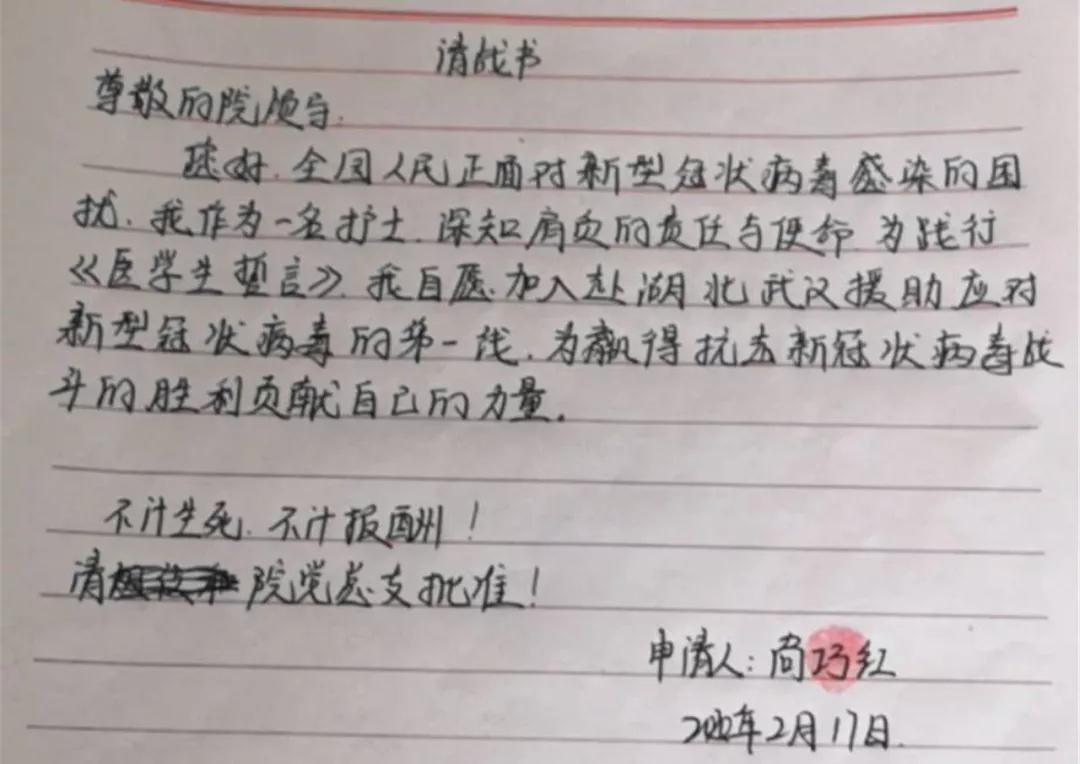 请战书
尊敬的院领导:
您好.全国人民正面对新型冠状病毒感染的困
扰.我作为一名护士.深知肩负的责任与使命.为践行
《医学生誓言》.我自愿.加入赴湖北武汉援助应对
新型冠状病毒的第一线.为赢得抗击新冠状病毒战
斗的胜利贡献自己的力量.
不计生死.不计报酬!
请 院党总支批准!
申请人:尚巧红
2020年2月17日.